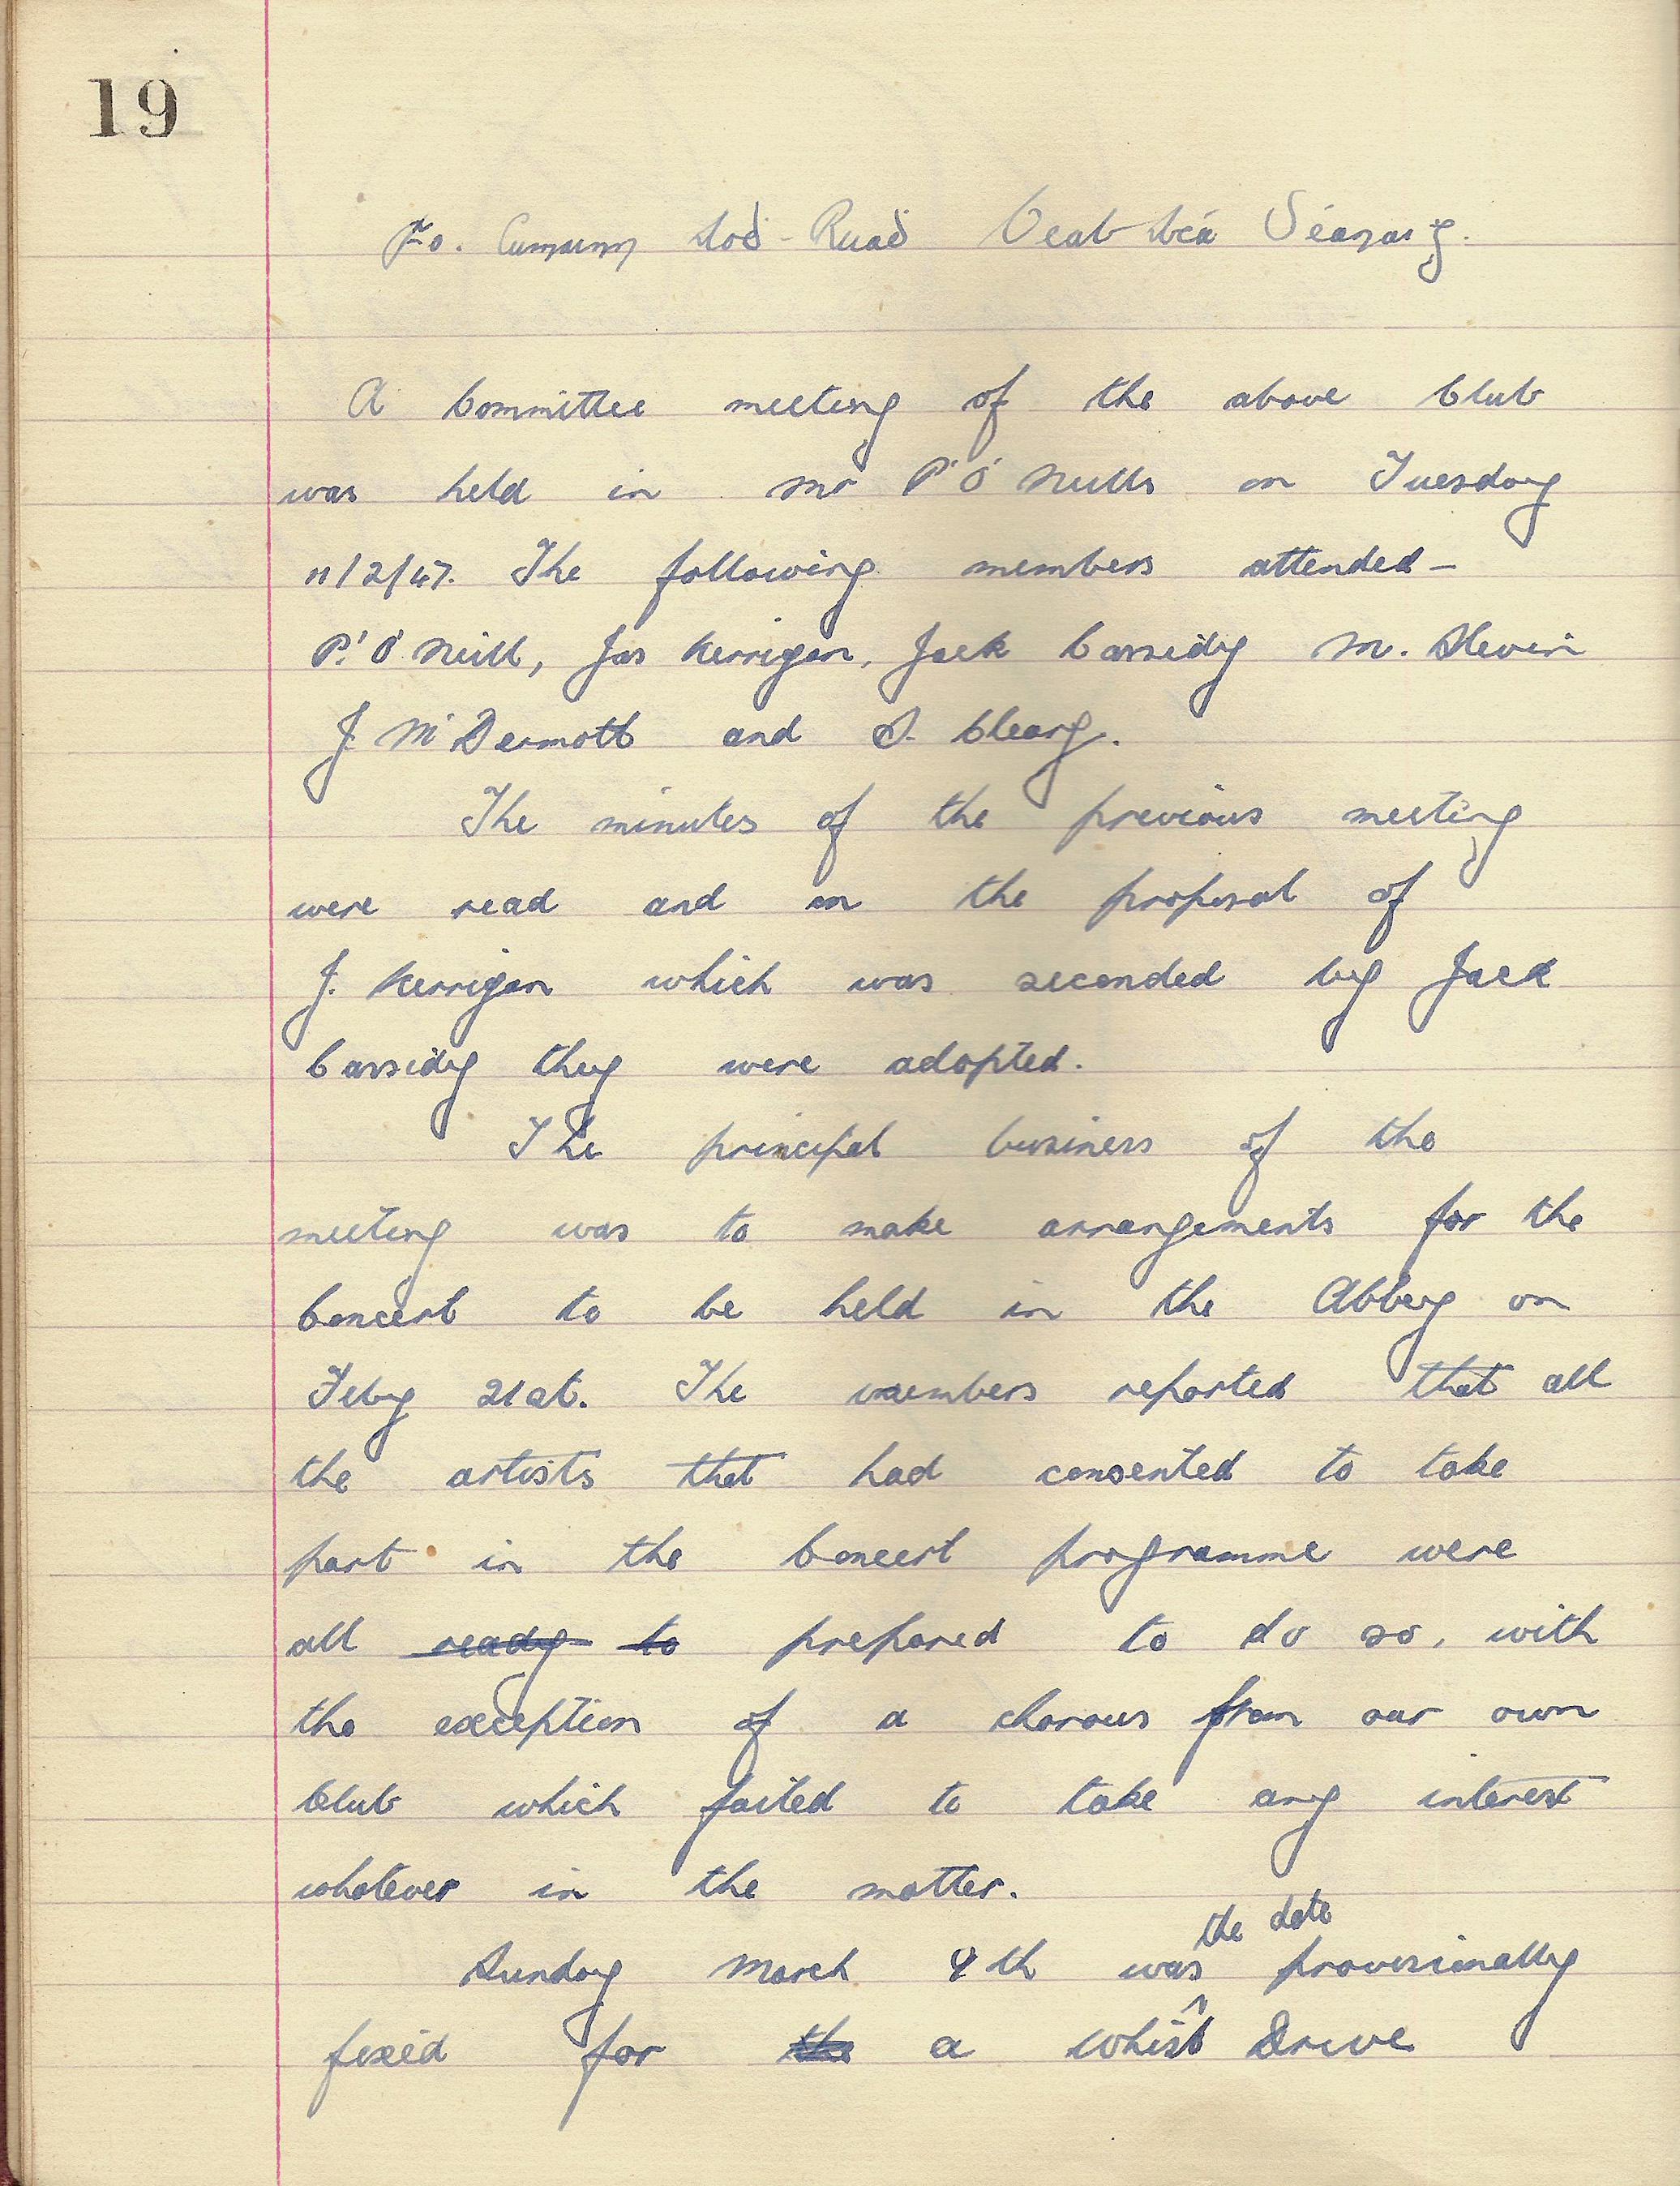 19
Fo. Cumann Aoḋ-Ruaḋ Beal áṫa Séanaiġ.
A Committee meeting of the above Club
was held in Mr P. O'Neills on Tuesday
11/2/47. The following members attended –
P. O'Neill, Jas Kerrigan, Jack Cassidy M. Slevin
J. McDermott and S. Cleary.
The minutes of the previous meeting
were read and on the proposal of
J. Kerrigan which was seconded by Jack
Cassidy they were adopted.
The principal business of the
meeting was to make arrangements for the
Concert to be held in the Abbey on
Feby 21st. The members reported that all
the artists that had consented to take
part in the Concert programme were
all ready to prepared to do so, with
the exception of a chorous from our own
Club which failed to take any interest
whatever in the matter.
Sunday March 9th was the date provisionally
fixed for the a Whist Drive